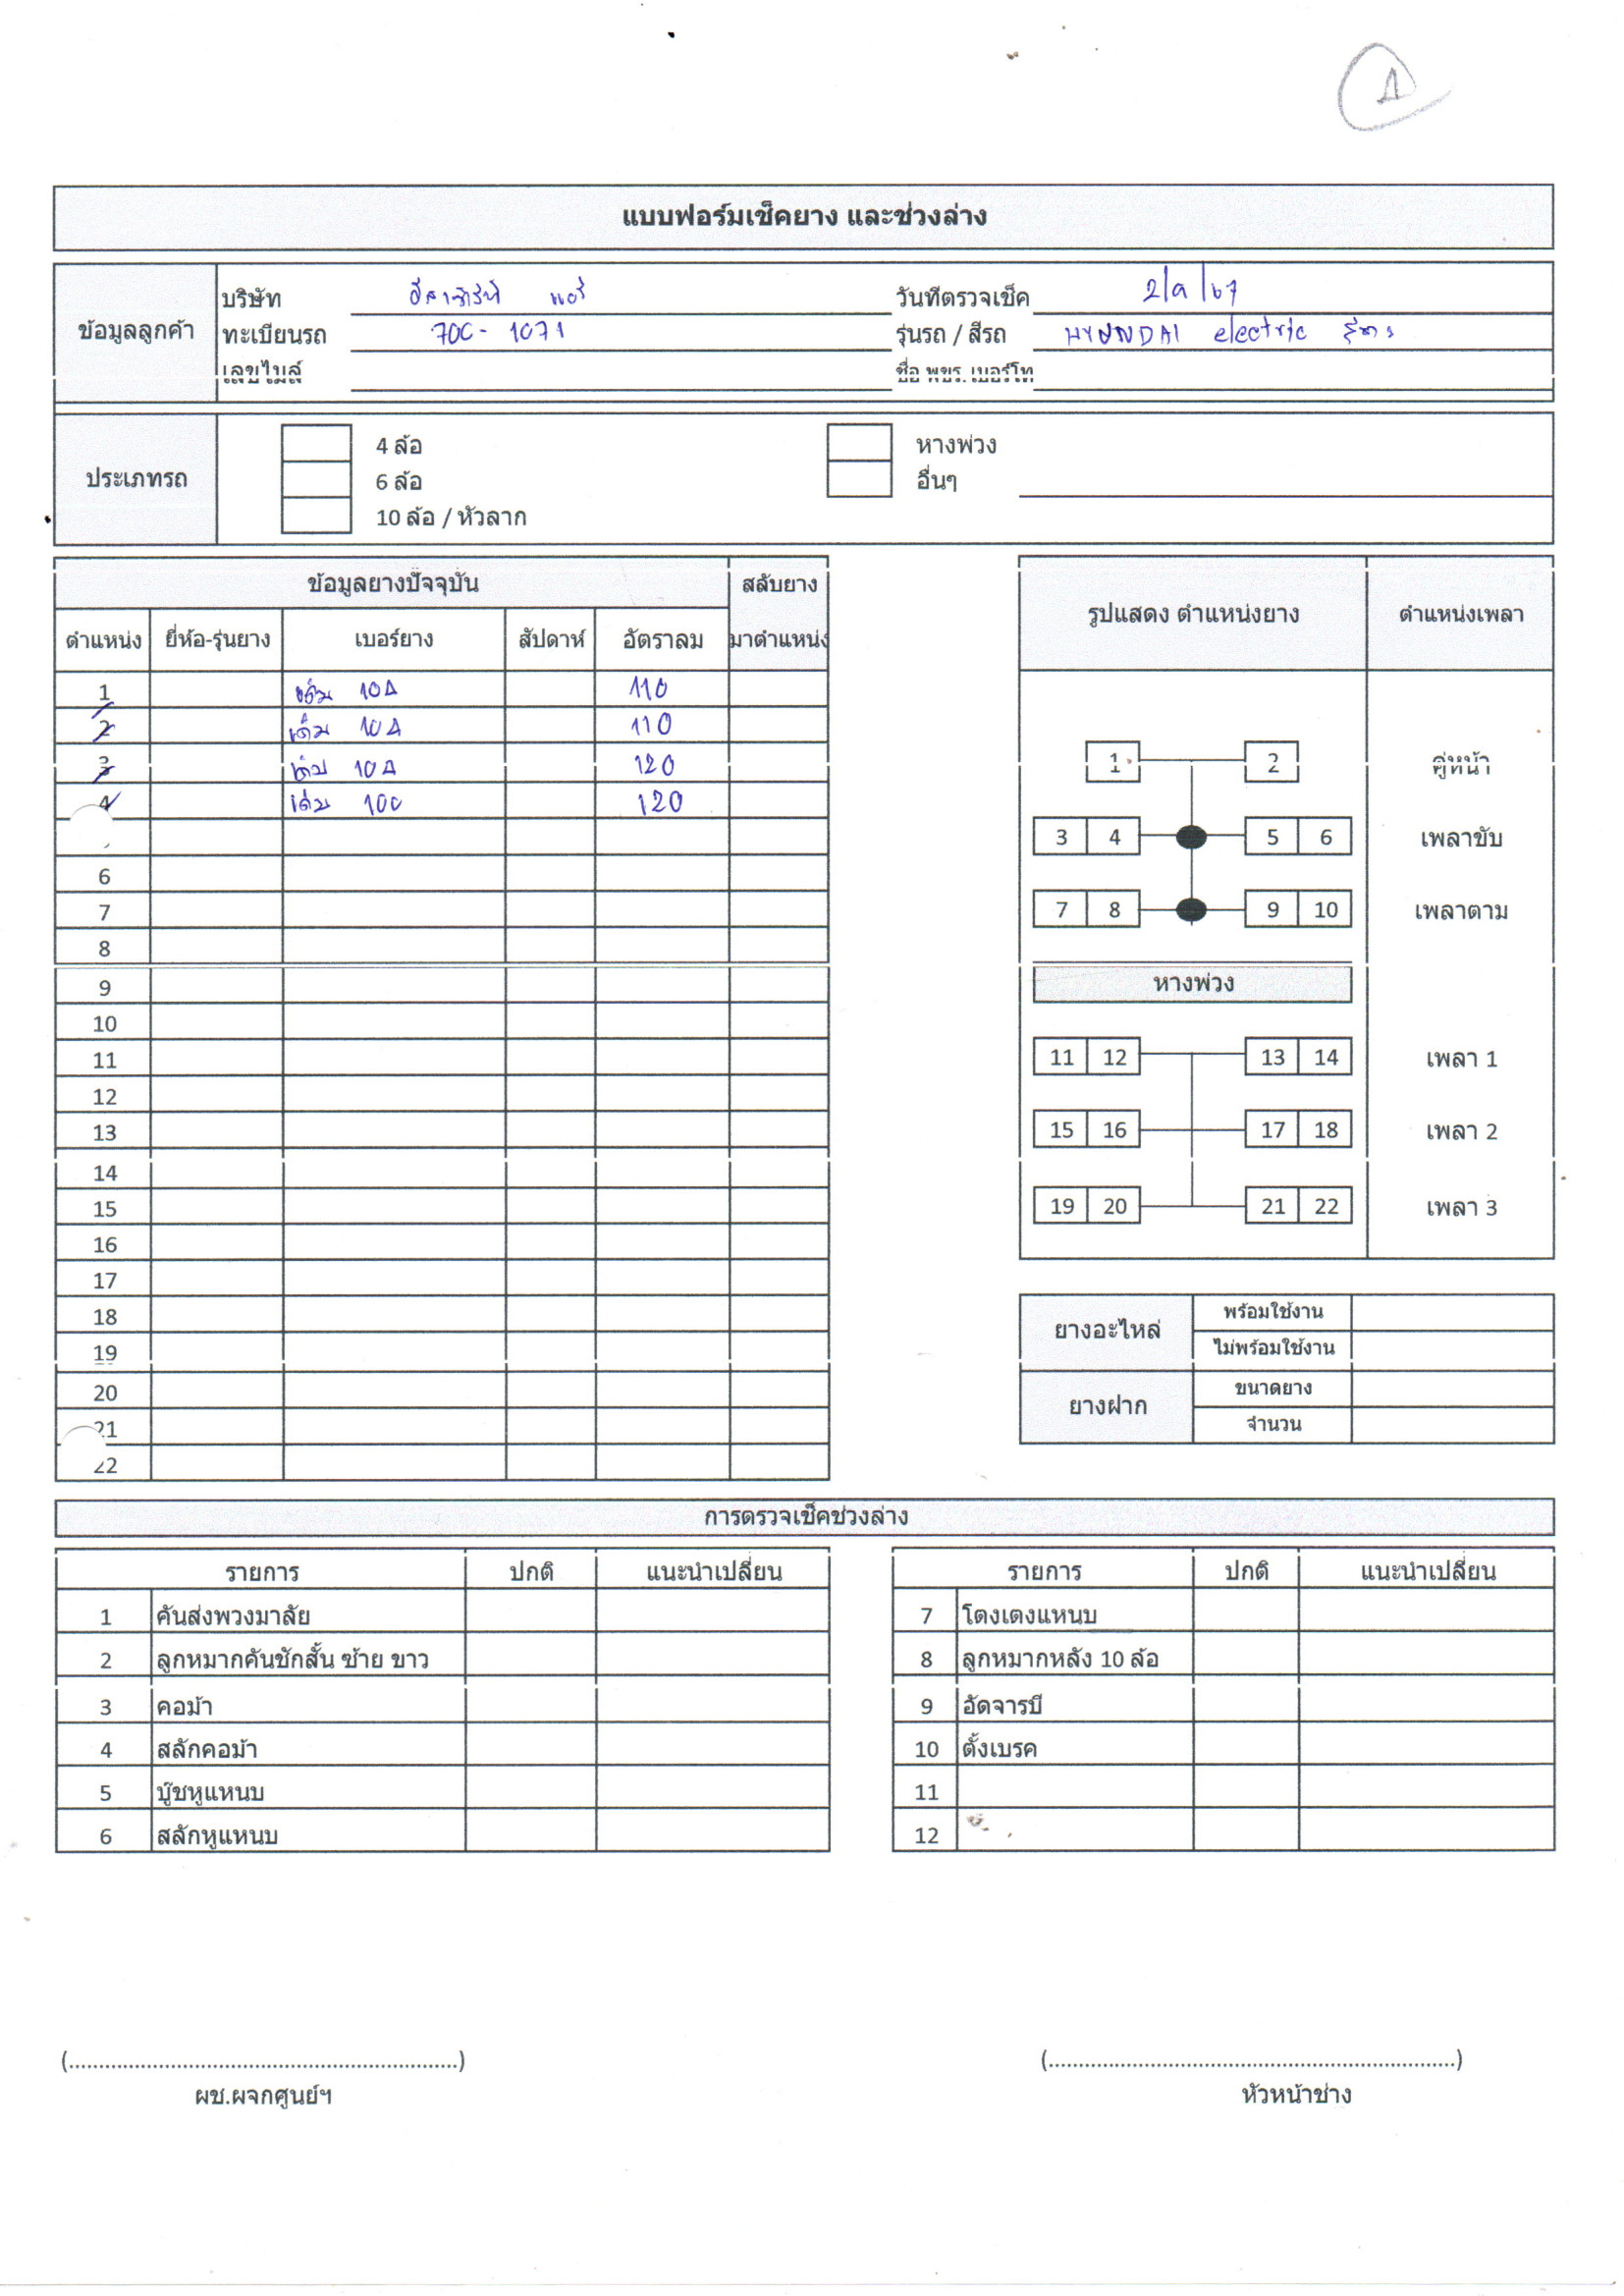 1
แบบฟอร์มเช็คยาง และช่วงล่าง
ข้อมูลลูกค้า
บริษัท
วันที่ตรวจเช็ค 2/9/67
ทะเบียนรถ 70C-1071
รุ่นรถ / สีรถ HYUNDAI electric
เลขไมล์
ชื่อ พขร. เบอร์โท
ประเภทรถ
4 ล้อ
หางพ่วง
6 ล้อ
อื่นๆ
10 ล้อ / หัวลาก
ข้อมูลยางปัจจุบัน สลับยาง
ตำแหน่ง ยี่ห้อ-รุ่นยาง เบอร์ยาง สัปดาห์ อัตราลม มาตำแหน่ง
1 เติม 110
2 เติม 110
3 เติม 120
4 เติม 120
6
7
8
9
10
11
12
13
14
15
16
17
18
19
20
21
22
รูปแสดง ตำแหน่งยาง ตำแหน่งเพลา
1 2 คู่หน้า
3 4 5 6 เพลาขับ
7 8 9 10 เพลาตาม
หางพ่วง
11 12 13 14 เพลา 1
15 16 17 18 เพลา 2
19 20 21 22 เพลา 3
ยางอะไหล่ พร้อมใช้งาน
ไม่พร้อมใช้งาน
ยางฝาก ขนาดยาง
จำนวน
การตรวจเช็คช่วงล่าง
รายการ ปกติ แนะนำเปลี่ยน
1 คันส่งพวงมาลัย
2 ลูกหมากคันชักสั้น ซ้าย ขาว
3 คอม้า
4 สลักคอม้า
5 บู๊ชหูแหนบ
6 สลักหูแหนบ
รายการ ปกติ แนะนำเปลี่ยน
7 โตงเตงแหนบ
8 ลูกหมากหลัง 10 ล้อ
9 อัดจารบี
10 ตั้งเบรค
11
12
(..................................................................)
ผช.ผจกศูนย์ฯ
(.....................................................................)
หัวหน้าช่าง